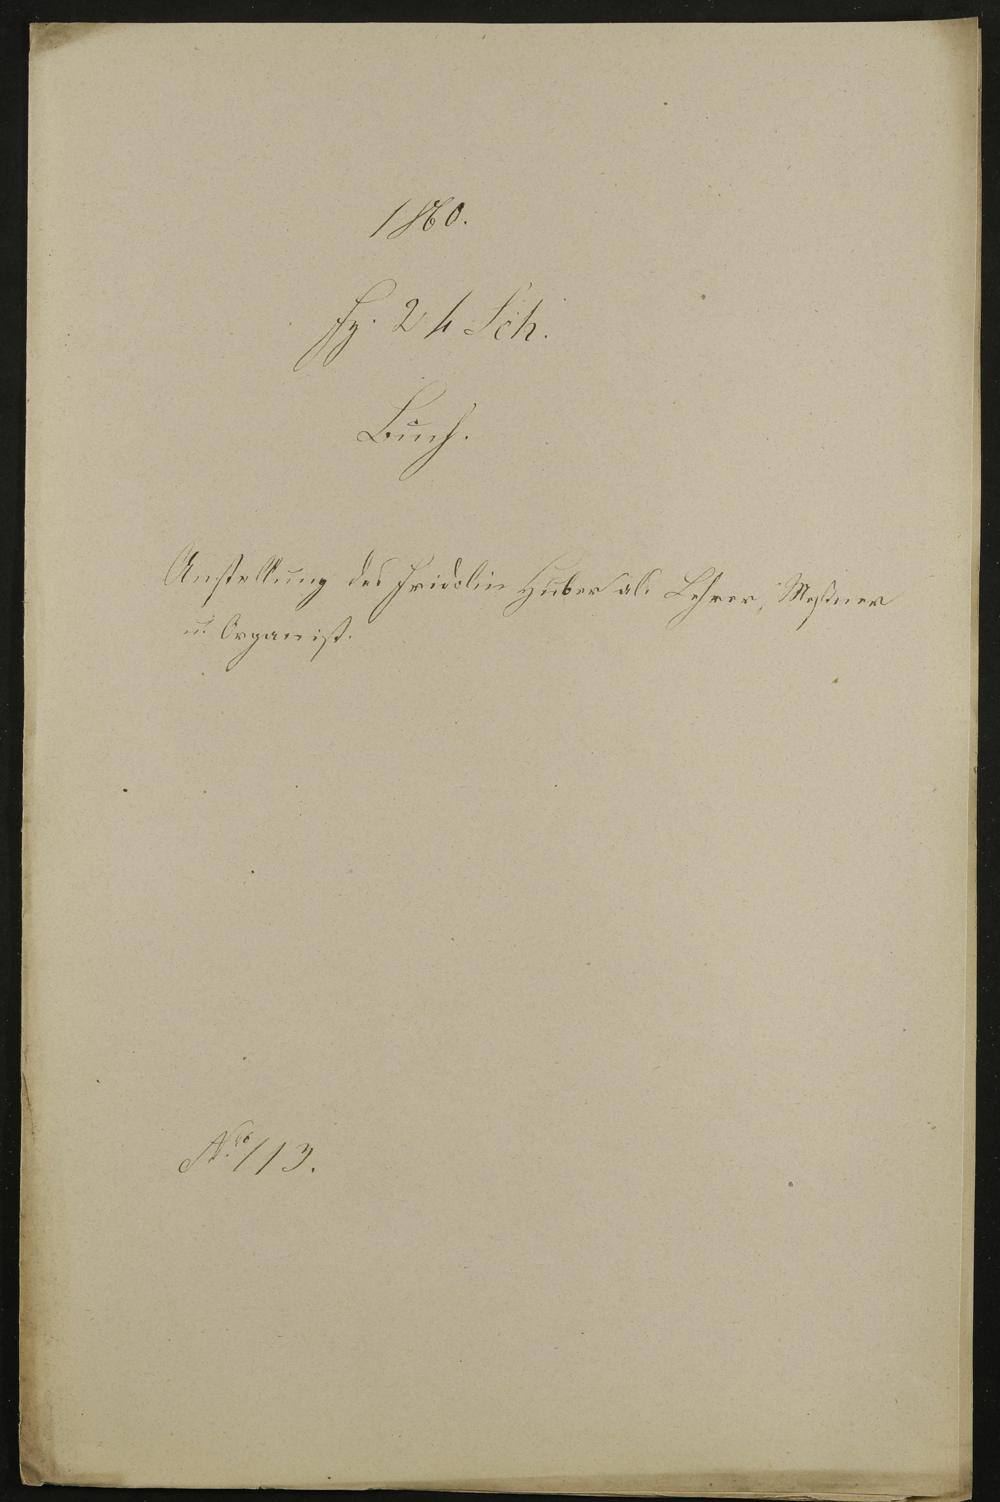 1860.
Fz. 2 h Sch.
Buch.
Anstellung des Fridolin Huber als Lehrer, Meßner
u. Organist.
No 113.